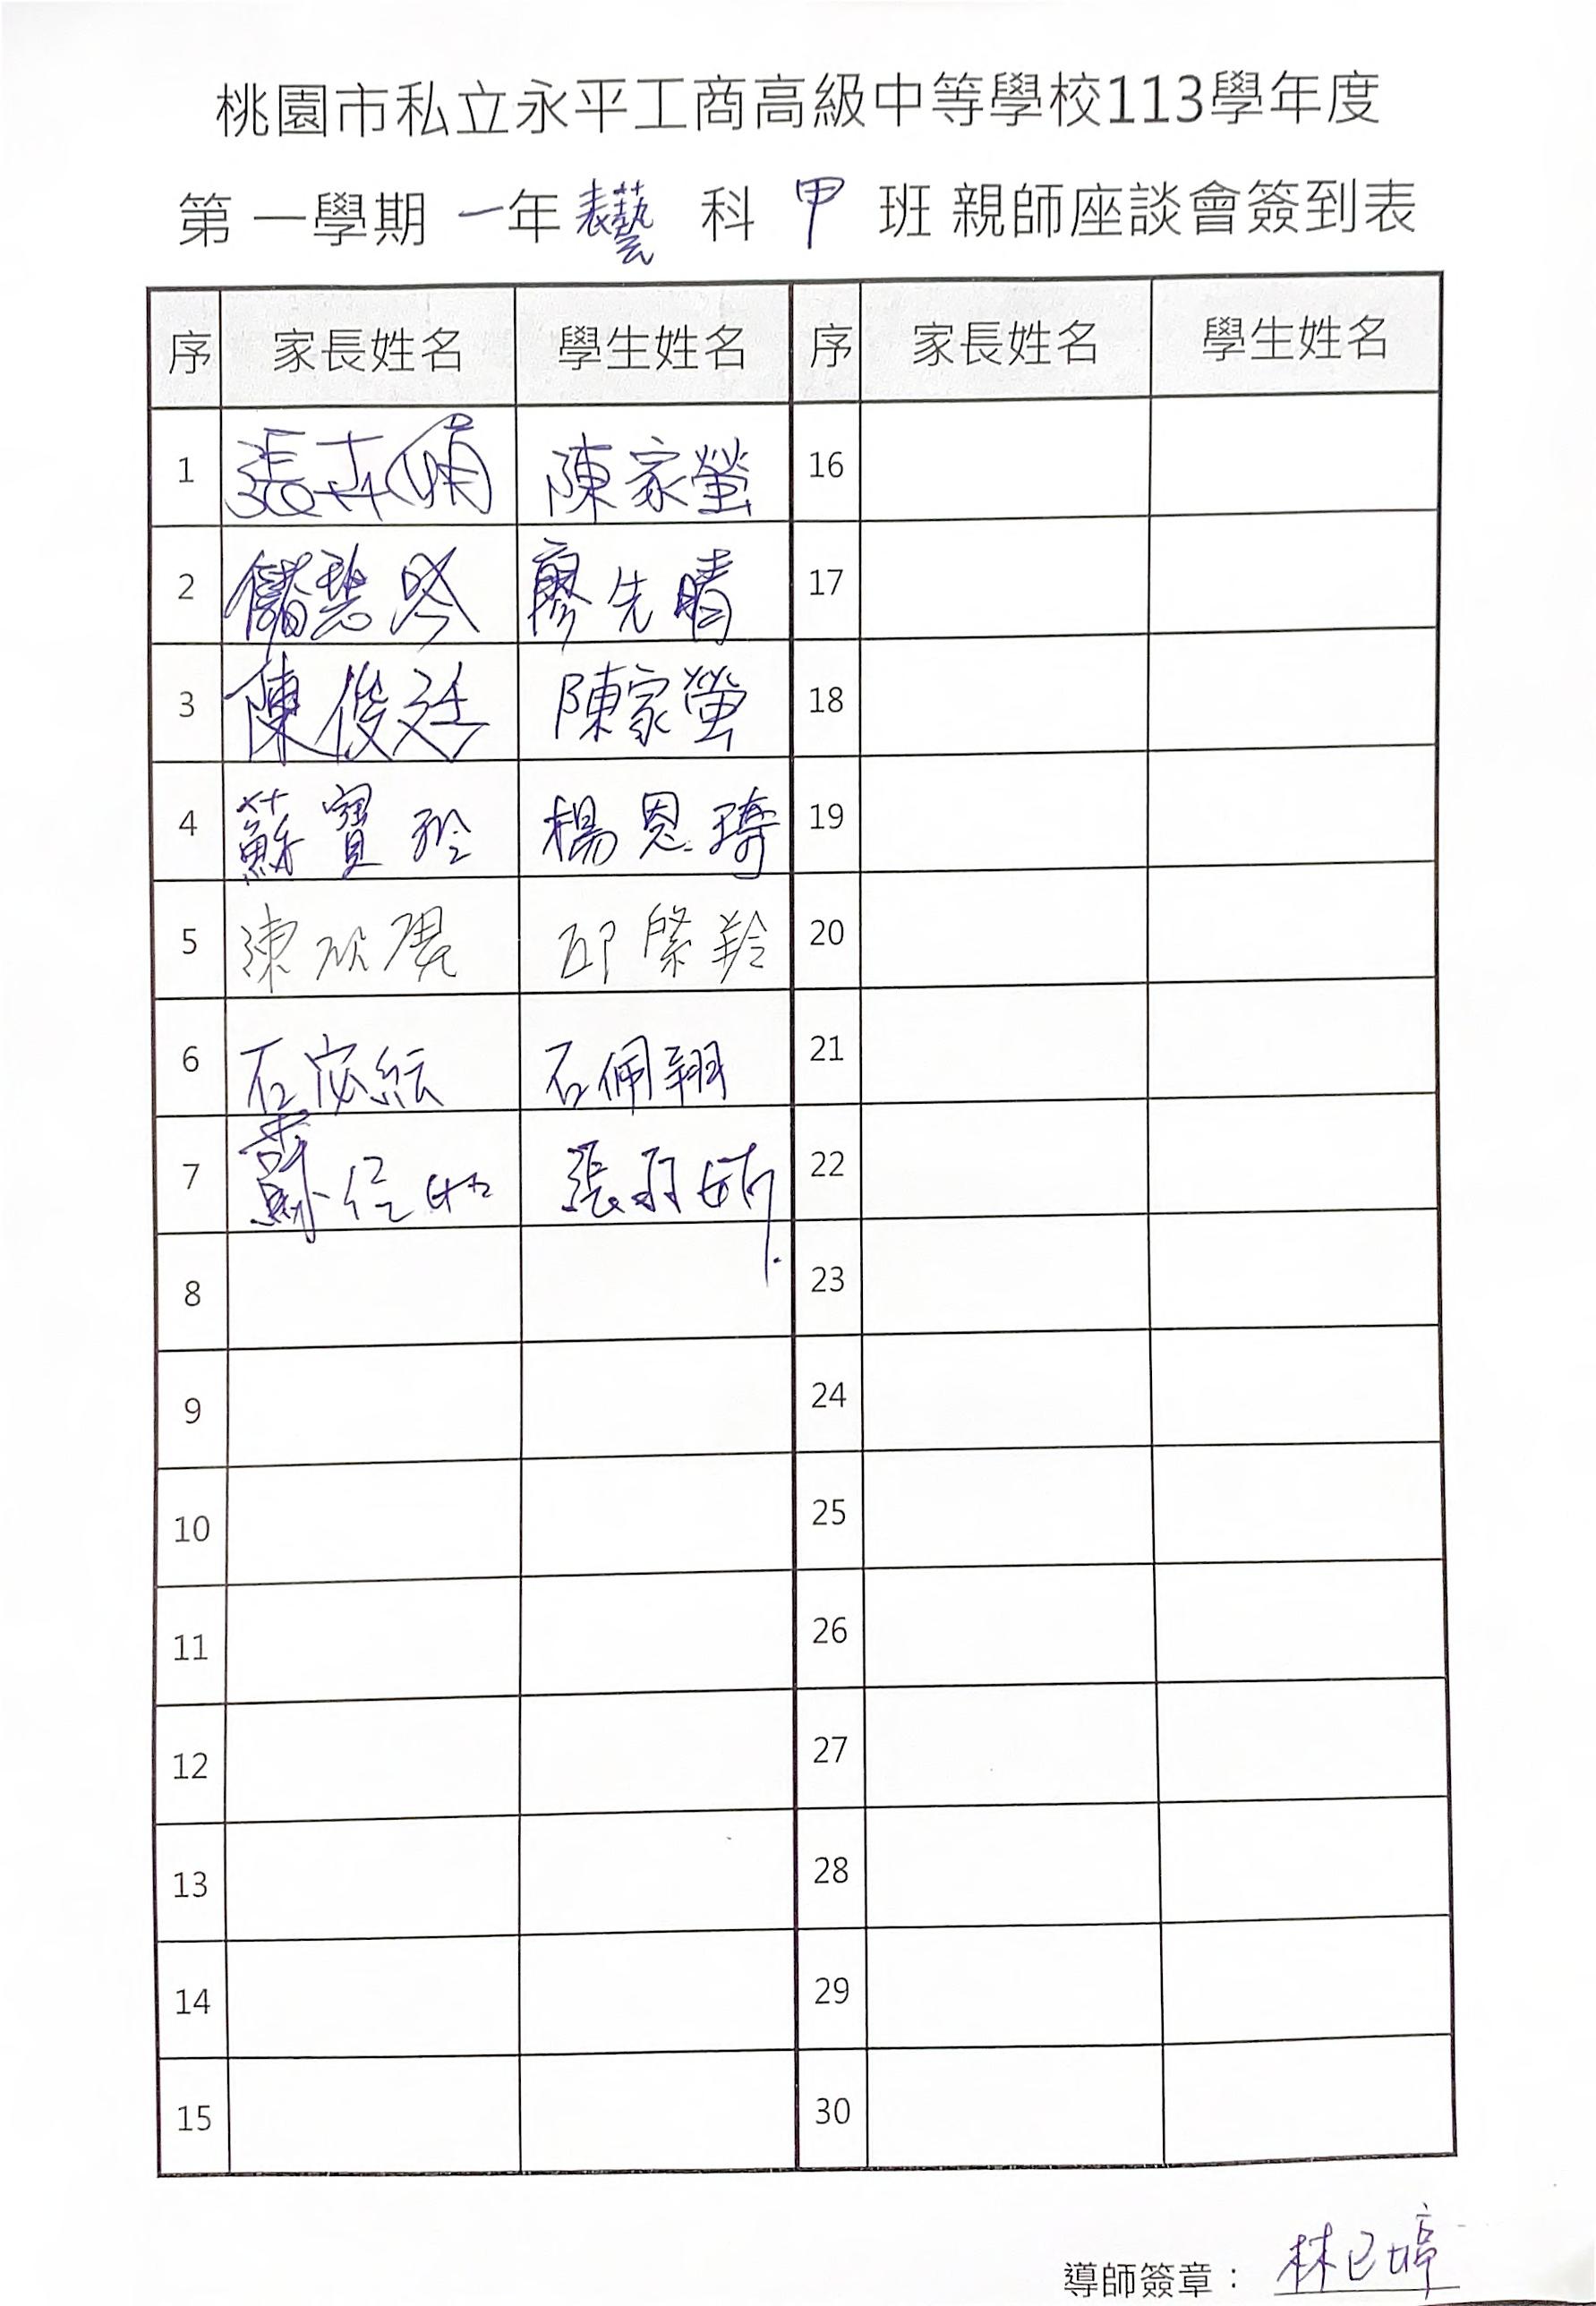 桃園市私立永平工商高級中等學校113學年度
第一學期 一年 表藝 科 甲 班 親師座談會簽到表
序 家長姓名 學生姓名 序 家長姓名 學生姓名
1 張卉娟 陳家螢 16
2 儲碧 廖先晴 17
3 陳俊廷 陳家螢 18
4 蘇寶玲 楊恩琦 19
5 陳欣 邱縈羚 20
6 石宓紜 石佩翔 21
7 蘇 張 22
8 23
9 24
10 25
11 26
12 27
13 28
14 29
15 30
導師簽章： 林已婷